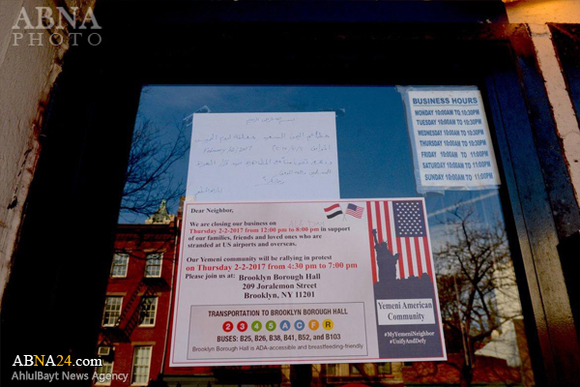 ABNA
PHOTO
BUSINESS HOURS
MONDAY 10:00AM TO 10:30PM
TUESDAY 10:00AM TO 10:30PM
WEDNESDAY 10:00AM TO 10:30PM
THURSDAY 10:00AM TO 10:30PM
FRIDAY 10:00AM TO 11:00PM
SATURDAY 10:00AM TO 11:00PM
SUNDAY 10:00AM TO 11:00PM
Dear Neighbor,
We are closing our business on
Thursday 2-2-2017 from 12:00 pm to 8:00 pm in support
of our families, friends and loved ones who are
stranded at US airports and overseas.
Our Yemeni community will be rallying in protest
on Thursday 2-2-2017 from 4:30 pm to 7:00 pm
Please join us at: Brooklyn Borough Hall
209 Joralemon Street
Brooklyn, NY 11201
TRANSPORTATION TO BROOKLYN BOROUGH HALL
2 3 4 5 A C F R
BUSES: B25, B26, B38, B41, B52, and B103
Brooklyn Borough Hall is ADA-accessible and breastfeeding-friendly
Yemeni American
Community
#MyYemeniNeighbor
#UnifyAndDefy
ABNA24.com
AhlulBayt News Agency